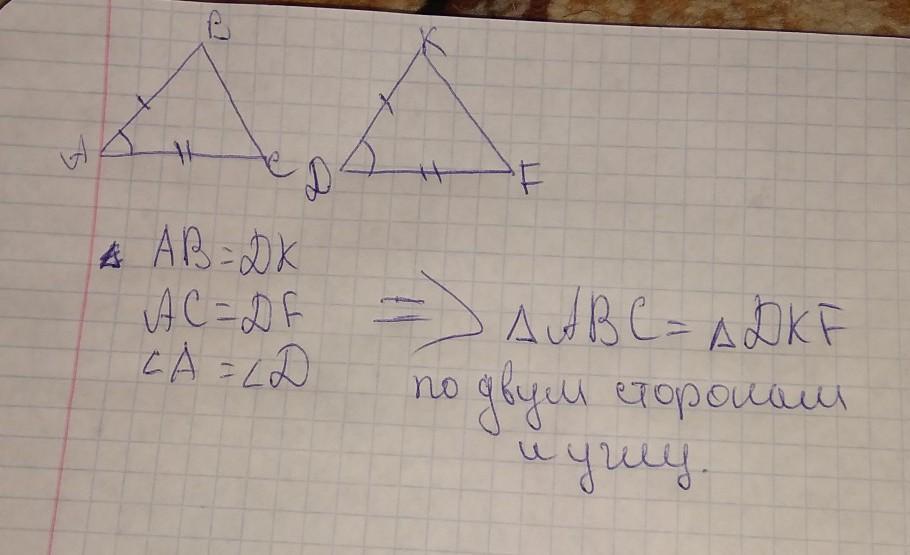 B
K
A
C
D
F
AB = DK
AC = DF
∠A = ∠D
=> △ABC = △DKF
по двум сторонам
и углу.